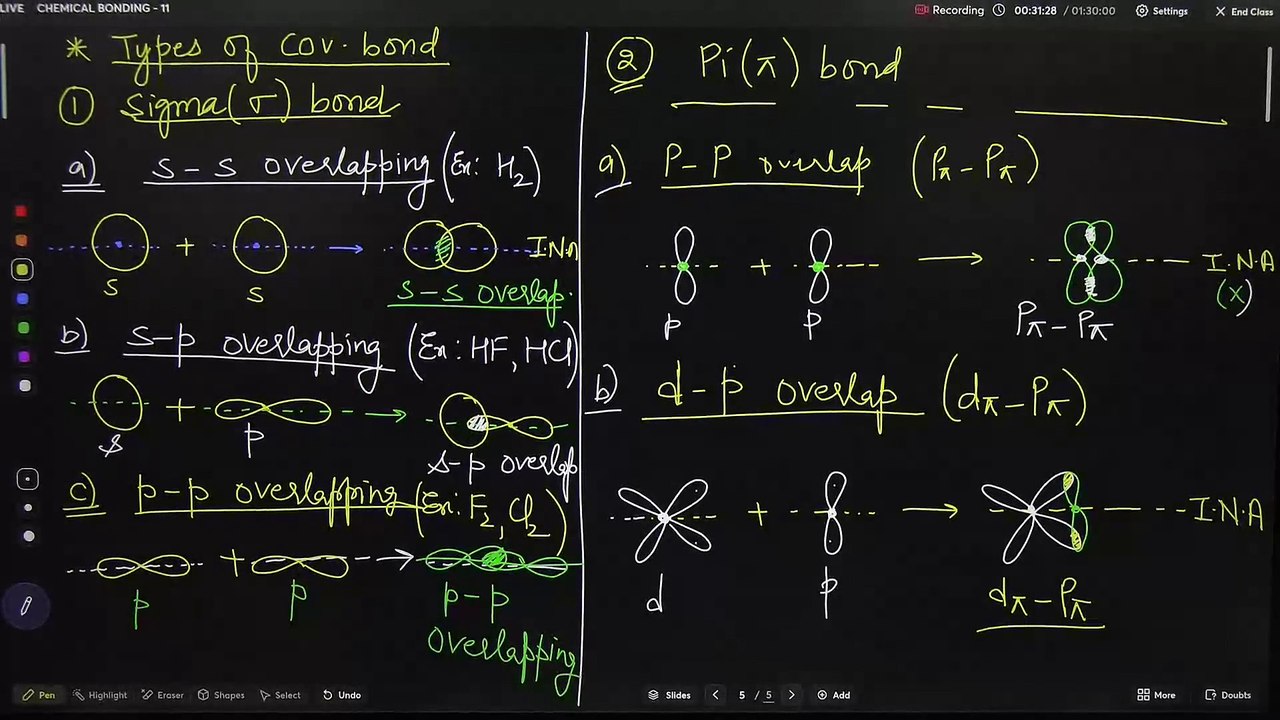 LIVE CHEMICAL BONDING - 11
Recording 00:31:28 / 01:30:00 Settings End Class
* Types of Cov. bond
① Sigma(σ) bond
a) s-s overlapping (Ex: H₂)
+ I.N.A
s s s-s overlap.
b) s-p overlapping (Ex: HF, HCl)
+
s p s-p overlap
c) p-p overlapping (Ex: F₂, Cl₂)
+
p p p-p
overlapping
② Pi(π) bond
a) P-P overlap (Pπ-Pπ)
+ I.N.A
(x)
p p Pπ-Pπ
b) d-p overlap (dπ-Pπ)
+ I.N.A
d p dπ-Pπ
Pen Highlight Eraser Shapes Select Undo Slides 5 / 5 Add More Doubts